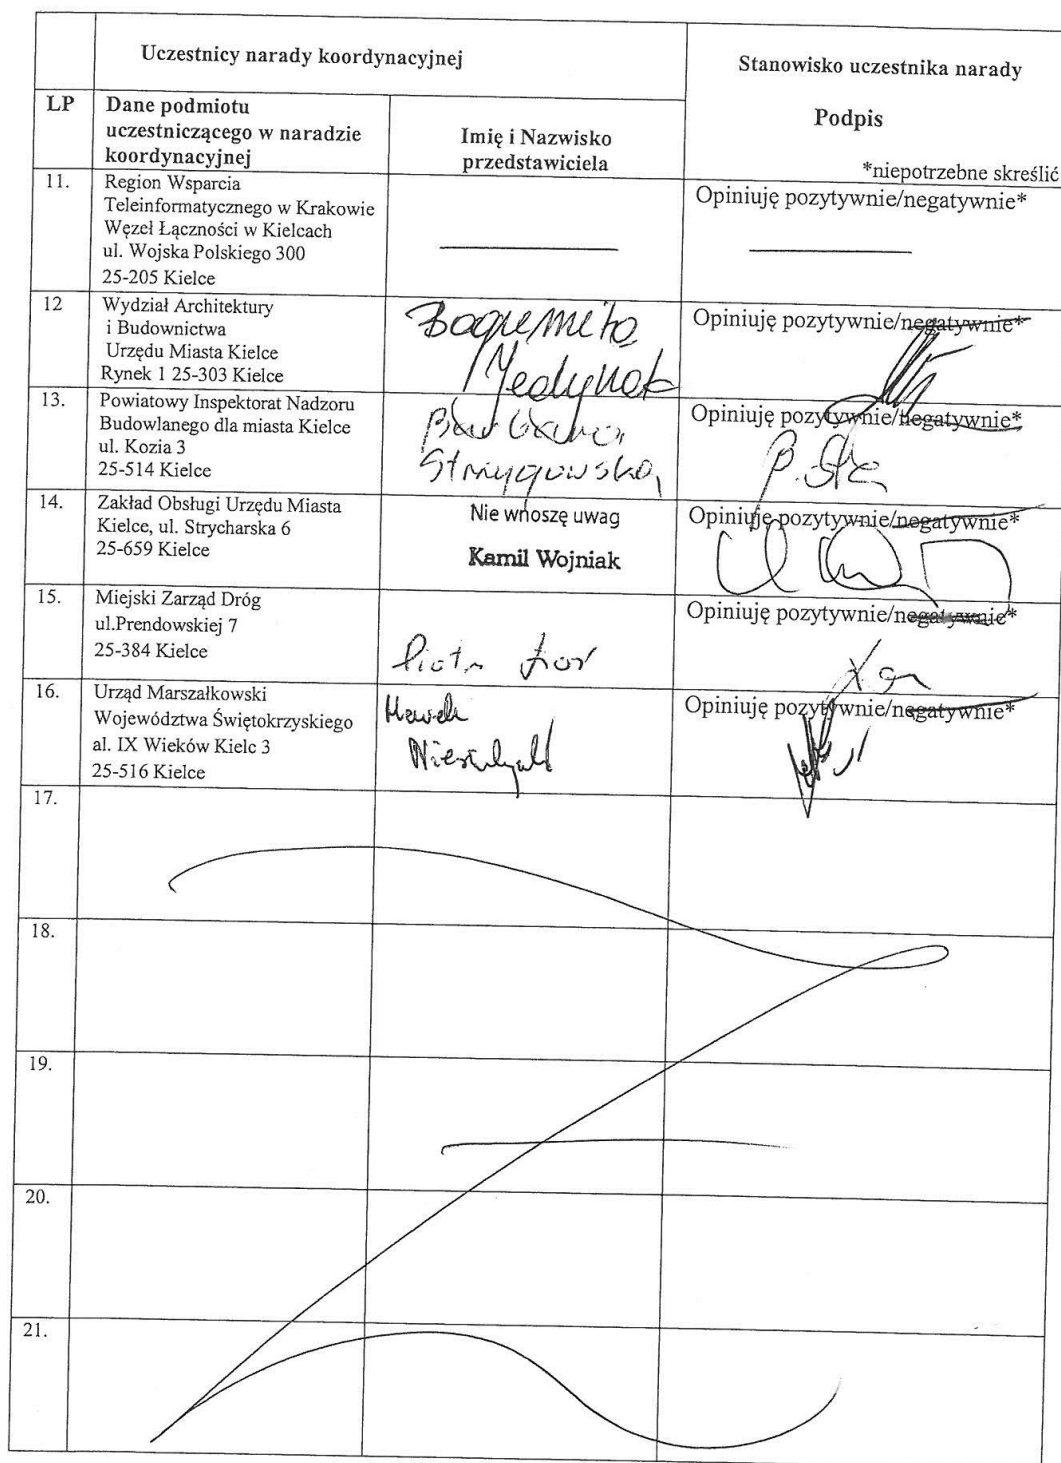 Uczestnicy narady koordynacyjnej
Stanowisko uczestnika narady
Podpis
*niepotrzebne skreślić
LP
Dane podmiotu
uczestniczącego w naradzie
koordynacyjnej
Imię i Nazwisko
przedstawiciela
11.
Region Wsparcia
Teleinformatycznego w Krakowie
Węzeł Łączności w Kielcach
ul. Wojska Polskiego 300
25-205 Kielce
Opiniuję pozytywnie/negatywnie*
12
Wydział Architektury
i Budownictwa
Urzędu Miasta Kielce
Rynek 1 25-303 Kielce
Opiniuję pozytywnie/negatywnie*
13.
Powiatowy Inspektorat Nadzoru
Budowlanego dla miasta Kielce
ul. Kozia 3
25-514 Kielce
Barbara
Opiniuję pozytywnie/negatywnie*
14.
Zakład Obsługi Urzędu Miasta
Kielce, ul. Strycharska 6
25-659 Kielce
Nie wnoszę uwag
Kamil Wojniak
Opiniuję pozytywnie/negatywnie*
15.
Miejski Zarząd Dróg
ul.Prendowskiej 7
25-384 Kielce
Piotr
Opiniuję pozytywnie/negatywnie*
16.
Urząd Marszałkowski
Województwa Świętokrzyskiego
al. IX Wieków Kielc 3
25-516 Kielce
Opiniuję pozytywnie/negatywnie*
17.
18.
19.
20.
21.